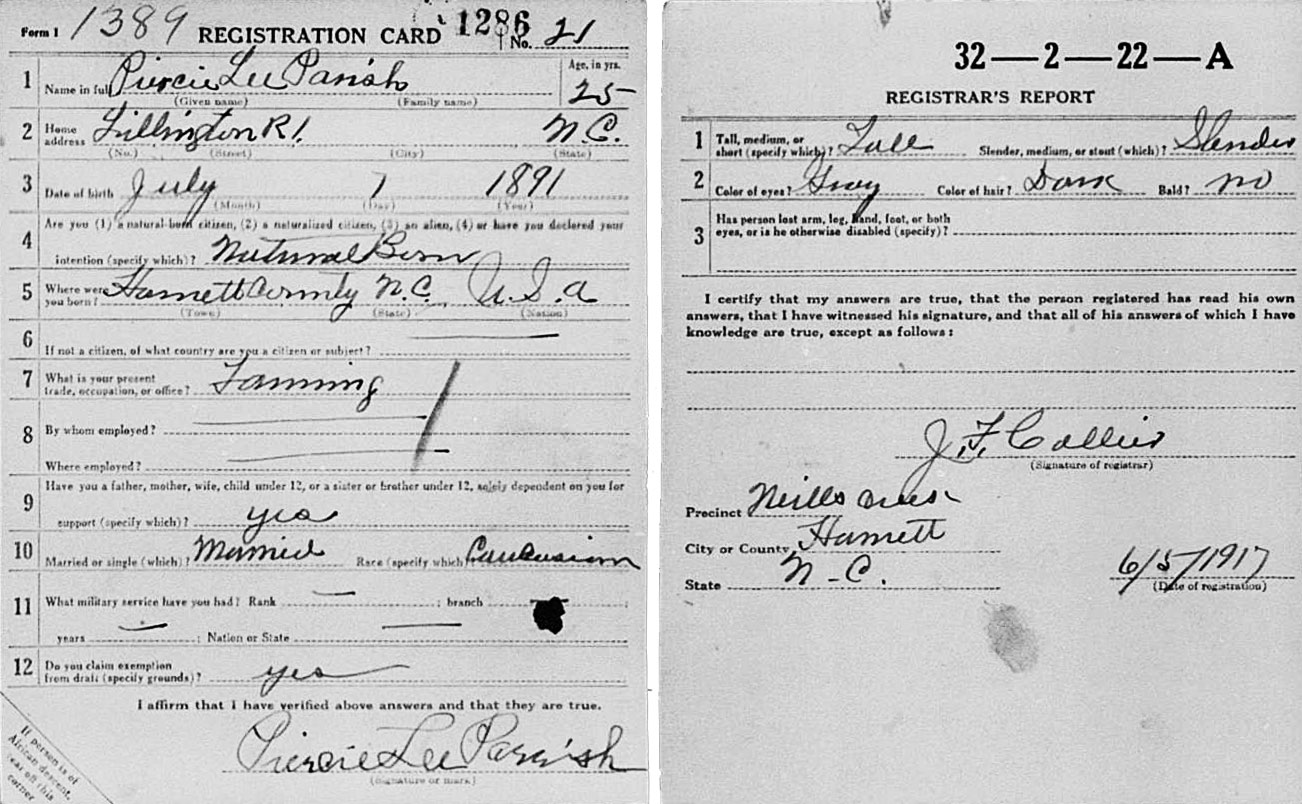 Form 1 1389 REGISTRATION CARD 1286 No. 21
1 Name in full Piercie Lee Parish Age, in yrs.
(Given name) (Family name) 25
2 Home address Lillington R1. N.C.
(No.) (Street) (City) (State)
3 Date of birth July 7 1891
(Month) (Day) (Year)
Are you (1) a natural-born citizen, (2) a naturalized citizen, (3) an alien, (4) or have you declared your
4 intention (specify which)? Natural Born
5 Where were you born? Harnett County N.C. U.S.A
(Town) (State) (Nation)
6 If not a citizen, of what country are you a citizen or subject?
7 What is your present trade, occupation, or office? Farming
8 By whom employed?
Where employed?
9 Have you a father, mother, wife, child under 12, or a sister or brother under 12, solely dependent on you for
support (specify which)? yes
10 Married or single (which)? Married Race (specify which) Caucasian
11 What military service have you had? Rank ; branch ;
years ; Nation or State
12 Do you claim exemption from draft (specify grounds)? yes
I affirm that I have verified above answers and that they are true.
Piercie Lee Parrish
(Signature or mark)
If person is of
African descent,
tear off this
corner
32—2—22—A
REGISTRAR'S REPORT
1 Tall, medium, or short (specify which)? Tall Slender, medium, or stout (which)? Slender
2 Color of eyes? Gray Color of hair? Dark Bald? no
3 Has person lost arm, leg, hand, foot, or both
eyes, or is he otherwise disabled (specify)?
I certify that my answers are true, that the person registered has read his own
answers, that I have witnessed his signature, and that all of his answers of which I have
knowledge are true, except as follows:
J. F. Collier
(Signature of registrar)
Precinct Neills
City or County Harnett
State N-C. 6/5/1917
(Date of registration)